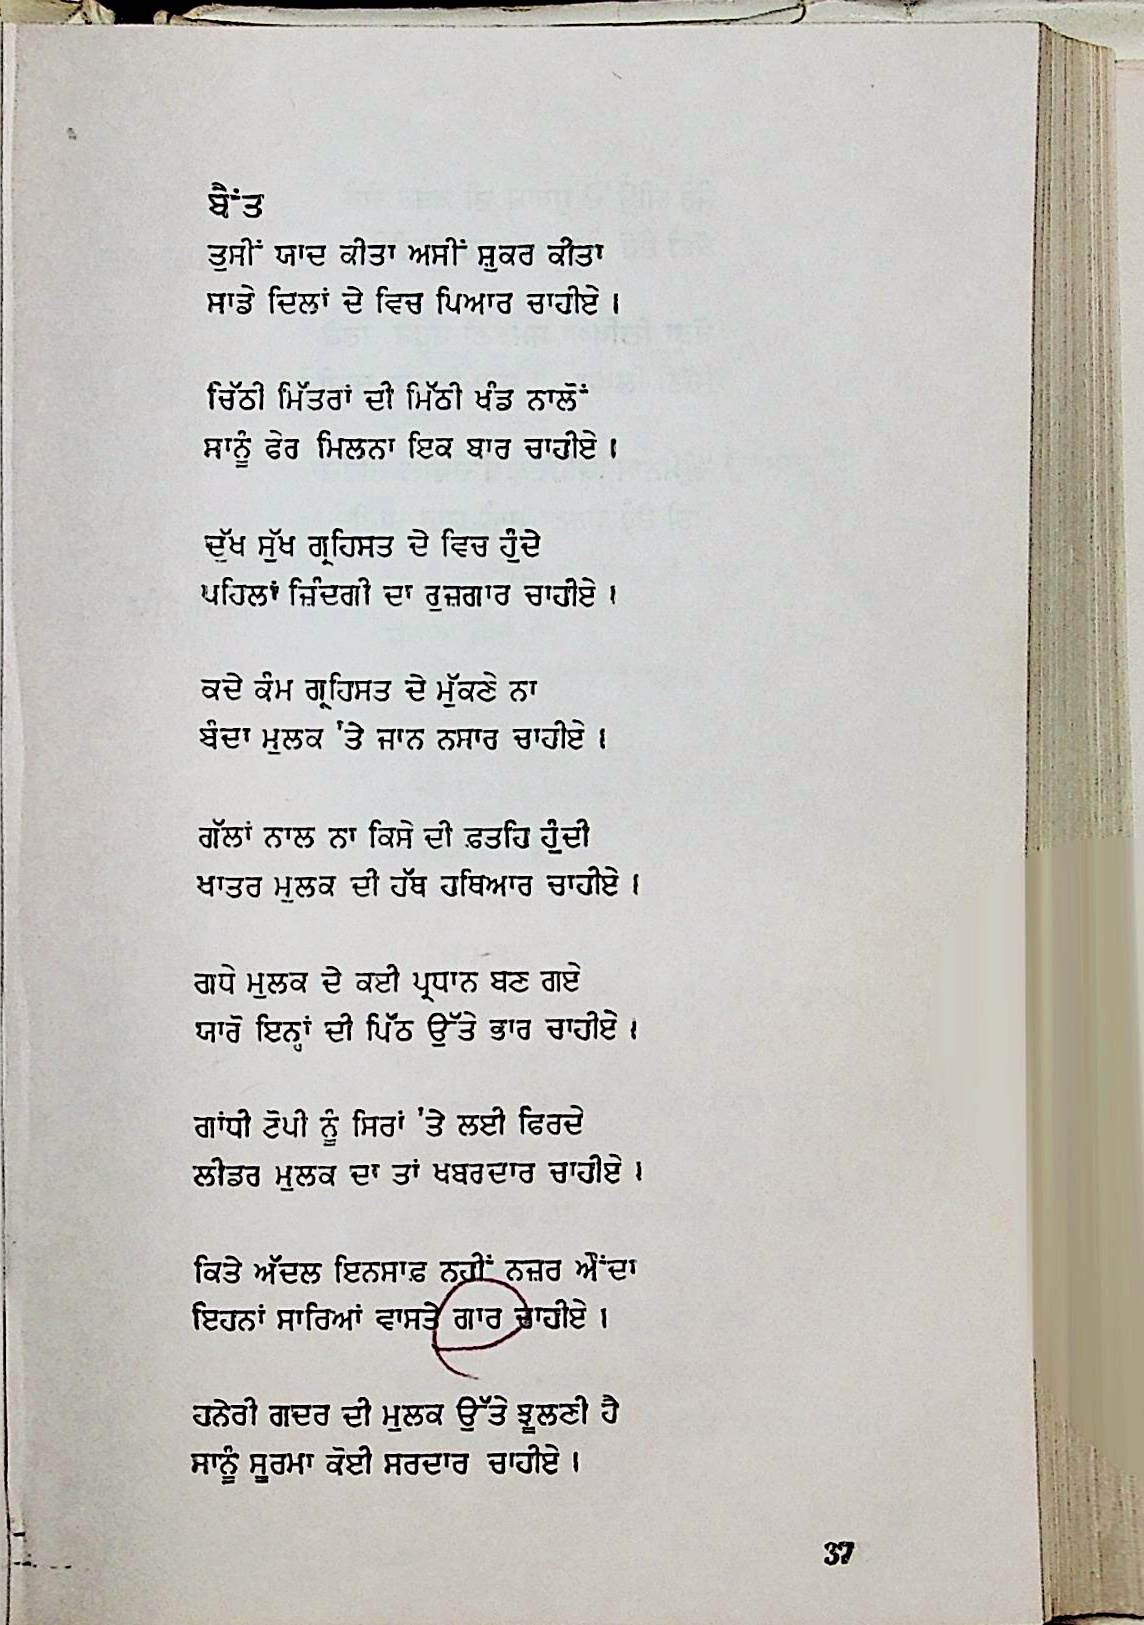 ਬੈਂਤ
ਤੁਸੀਂ ਯਾਦ ਕੀਤਾ ਅਸੀਂ ਸ਼ੁਕਰ ਕੀਤਾ
ਸਾਡੇ ਦਿਲਾਂ ਦੇ ਵਿਚ ਪਿਆਰ ਚਾਹੀਏ।
ਚਿੱਠੀ ਮਿੱਤਰਾਂ ਦੀ ਮਿੱਠੀ ਖੰਡ ਨਾਲੋਂ
ਸਾਨੂੰ ਫੇਰ ਮਿਲਨਾ ਇਕ ਬਾਰ ਚਾਹੀਏ।
ਦੁੱਖ ਸੁੱਖ ਗ੍ਰਹਿਸਤ ਦੇ ਵਿਚ ਹੁੰਦੇ
ਪਹਿਲਾਂ ਜ਼ਿੰਦਗੀ ਦਾ ਰੁਜ਼ਗਾਰ ਚਾਹੀਏ।
ਕਦੇ ਕੰਮ ਗ੍ਰਹਿਸਤ ਦੇ ਮੁੱਕਣੇ ਨਾ
ਬੰਦਾ ਮੁਲਕ 'ਤੇ ਜਾਨ ਨਸਾਰ ਚਾਹੀਏ।
ਗੱਲਾਂ ਨਾਲ ਨਾ ਕਿਸੇ ਦੀ ਫ਼ਤਹਿ ਹੁੰਦੀ
ਖਾਤਰ ਮੁਲਕ ਦੀ ਹੱਥ ਹਥਿਆਰ ਚਾਹੀਏ।
ਗਧੇ ਮੁਲਕ ਦੇ ਕਈ ਪ੍ਰਧਾਨ ਬਣ ਗਏ
ਯਾਰੋ ਇਨ੍ਹਾਂ ਦੀ ਪਿੱਠ ਉੱਤੇ ਭਾਰ ਚਾਹੀਏ।
ਗਾਂਧੀ ਟੋਪੀ ਨੂੰ ਸਿਰਾਂ 'ਤੇ ਲਈ ਫਿਰਦੇ
ਲੀਡਰ ਮੁਲਕ ਦਾ ਤਾਂ ਖਬਰਦਾਰ ਚਾਹੀਏ।
ਕਿਤੇ ਅੱਦਲ ਇਨਸਾਫ਼ ਨਹੀਂ ਨਜ਼ਰ ਔਂਦਾ
ਇਹਨਾਂ ਸਾਰਿਆਂ ਵਾਸਤੇ ਗਾਰ ਚਾਹੀਏ।
ਹਨੇਰੀ ਗਦਰ ਦੀ ਮੁਲਕ ਉੱਤੇ ਝੂਲਣੀ ਹੈ
ਸਾਨੂੰ ਸੂਰਮਾ ਕੋਈ ਸਰਦਾਰ ਚਾਹੀਏ।
37